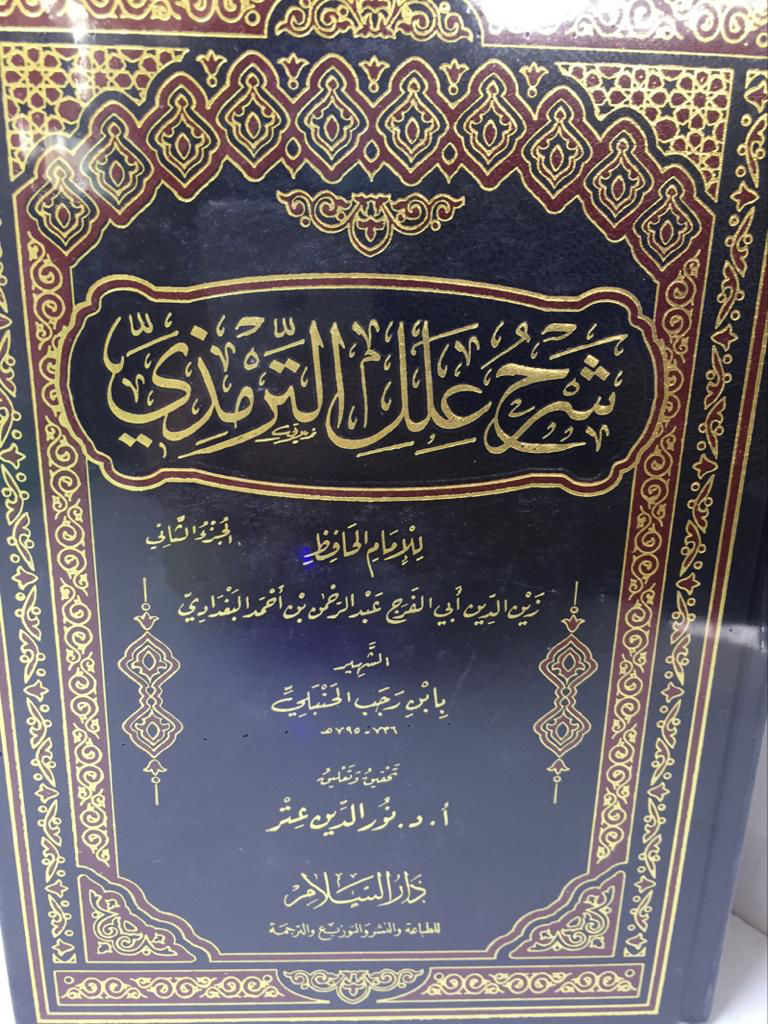 شَرْحُ عِلَلِ التِّرْمِذِيِّ
لِلإِمَامِ الحَافِظِ
الجُزْءُ الثَّانِي
زَيْنِ الدِّينِ أَبِي الفَرَجِ عَبْدِ الرَّحْمٰنِ بْنِ أَحْمَدَ البَغْدَادِيِّ
الشَّهِيرِ
بِابْنِ رَجَبٍ الحَنْبَلِيِّ
٧٣٦ - ٧٩٥ هـ
تَحْقِيقُ وَتَعْلِيقُ
أ. د. نُورُ الدِّينِ عِتْر
دَارُ السَّلَامِ
للطباعة والنشر والتوزيع والترجمة